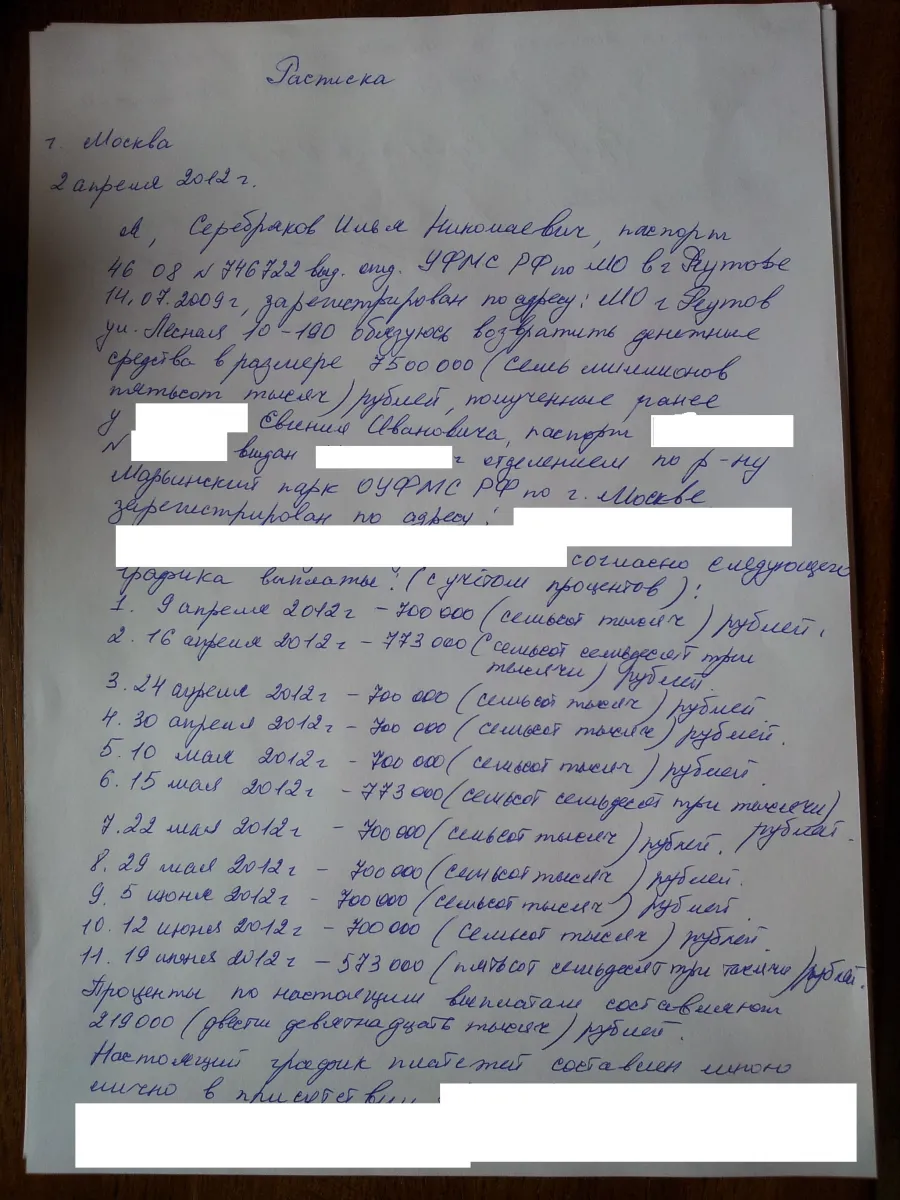 Расписка
г. Москва
2 апреля 2012 г.
Я, Серебряков Илья Николаевич, паспорт
46 08 № 746722 выд. отд. УФМС РФ по МО в г Реутове
14.07.2009 г, зарегистрирован по адресу: МО г Реутов
ул. Лесная 10-190 обязуюсь возвратить денежные
средства в размере 7500 000 (семь миллионов
пятьсот тысяч) рублей, полученные ранее
у Евгения Ивановича, паспорт
№ выдан г отделением по р-ну
Марьинский парк ОУФМС РФ по г. Москве
зарегистрирован по адресу:
согласно следующего
графика выплаты: (с учётом процентов):
1. 9 апреля 2012 г - 700 000 (семьсот тысяч) рублей.
2. 16 апреля 2012 г - 773 000 (семьсот семьдесят три
тысячи) рублей.
3. 24 апреля 2012 г - 700 000 (семьсот тысяч) рублей
4. 30 апреля 2012 г - 700 000 (семьсот тысяч) рублей.
5. 10 мая 2012 г - 700 000 (семьсот тысяч) рублей.
6. 15 мая 2012 г - 773 000 (семьсот семьдесят три тысячи)
рублей.
7. 22 мая 2012 г - 700 000 (семьсот тысяч) рублей.
8. 29 мая 2012 г - 700 000 (семьсот тысяч) рублей.
9. 5 июня 2012 г - 700 000 (семьсот тысяч) рублей.
10. 12 июня 2012 г - 700 000 (семьсот тысяч) рублей.
11. 19 июня 2012 г - 573 000 (пятьсот семьдесят три тысячи) рублей.
Проценты по настоящим выплатам составляют
219 000 (двести девятнадцать тысяч) рублей.
Настоящий график платежей составлен мною
лично в присутствии